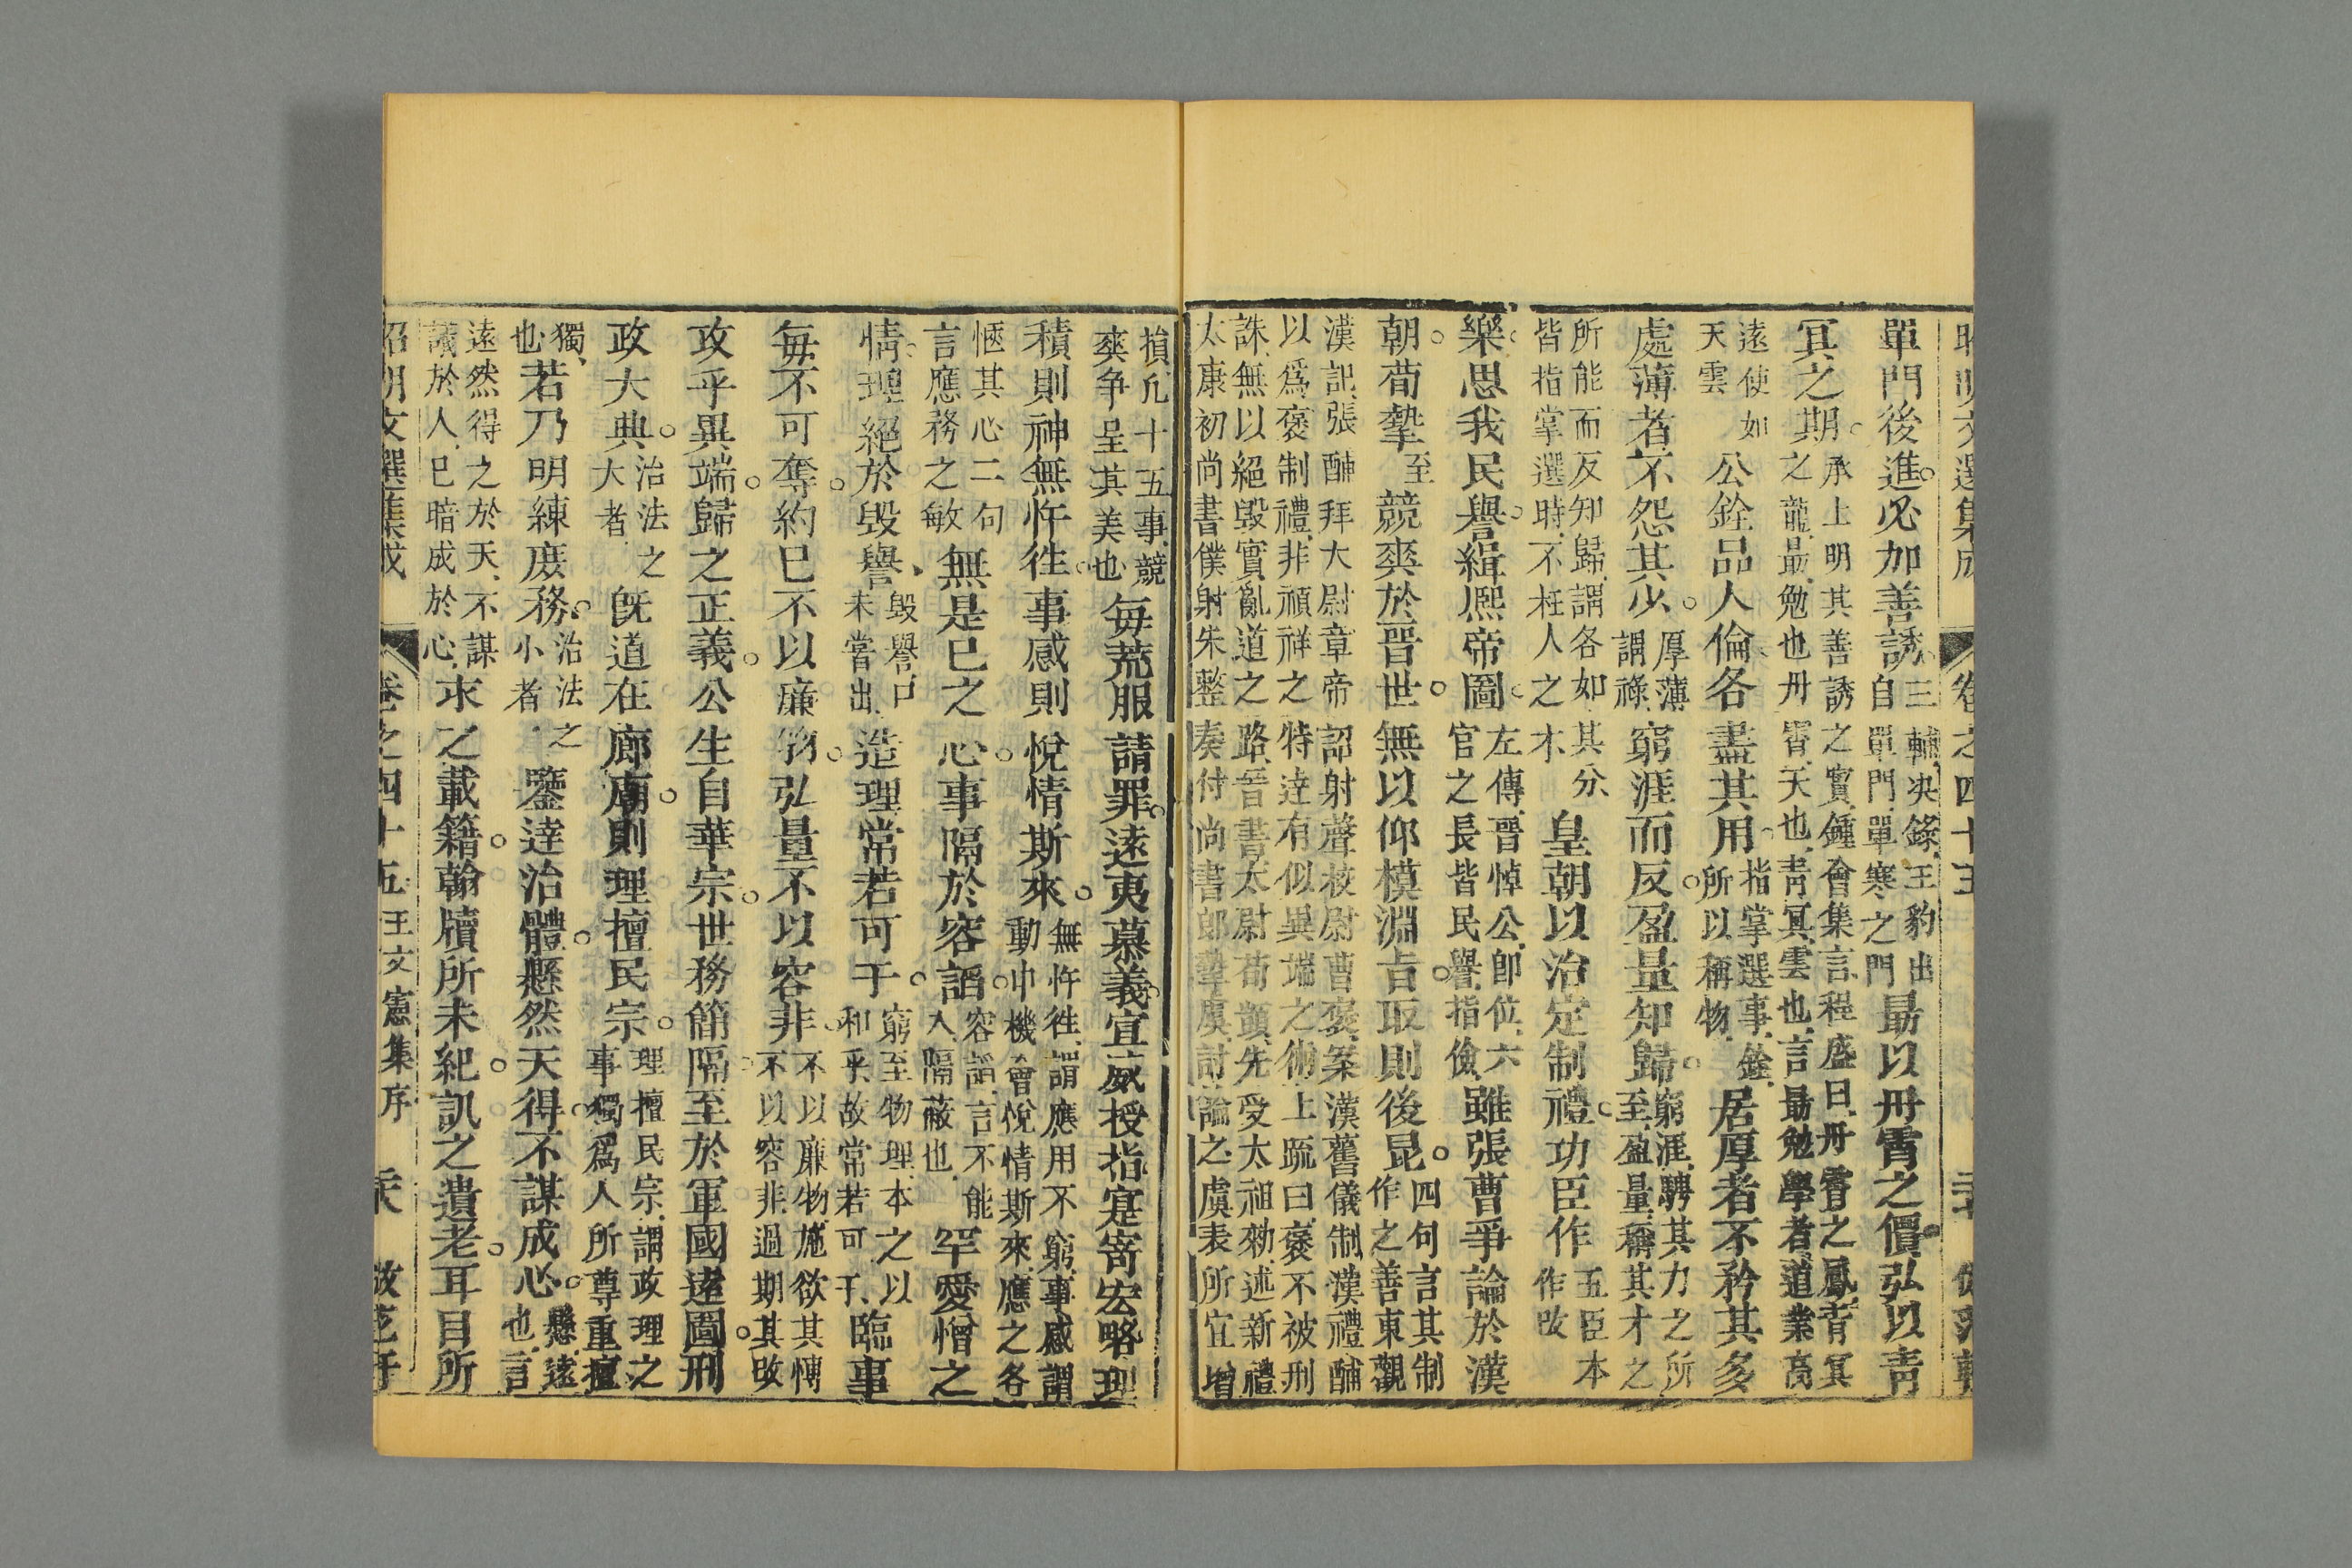 昭明文選集成 卷之四十五
單門後進必加善誘
三輔決錄王豹出
自單門單寒之門
最以丹霄之價弘以靑
冥之期
承上明其善誘之實鍾會集言程盛曰丹霄之鳳靑冥
之龍最勉也丹霄天也靑冥雲也言最勉學者道業高
遠使如
天雲
公銓品人倫各盡其用
指掌選事銓
所以稱物
居厚者不矜其多
處薄者不怨其少
厚薄
謂祿
窮涯而反盈量知歸
窮涯騁其力之所
至盈量稱其才之
所能而反知歸謂各如其分
皆指掌選時不枉人之才
皇朝以治定制禮功臣作
五臣本
作改
樂思我民譽緝熙帝圖
左傳晉悼公卽位六
官之長皆民譽指儉
雖張曹爭論於漢
朝荀摯至競爽於晉世無以仰模淵旨取則後昆
四句言其制
作之善東觀
漢記張酺拜大尉章帝詔射聲校尉曹褒案漢舊儀制漢禮酺
以爲褒制禮非禎祥之特達有似異端之術上疏曰褒不被刑
誅無以絕毀實亂道之路晉書太尉荀顗先受太祖勑述新禮
太康初尚書僕射朱整奏付尚書郎摯虞討論之虞表所宜增
損凡十五事競
爽争呈其美也
每荒服請罪遠夷慕義宣威授指寔寄宏略理
積則神無忤往事感則悅情斯來
無忤往謂應用不窮事感謂
動中機會悅情斯來應之各
愜其心二句
言應務之敏
無是已之心事隔於容諂
容諂言不能
入隔蔽也
罕愛憎之
情理絕於毀譽
毀譽口
未嘗出
造理常若可干
窮至物理本之以
和乎故常若可干
臨事
每不可奪約已不以廉物弘量不以容非
不以廉物施欲其慱
不以容非過期其改
攻乎異端歸之正義公生自華宗世務簡隔至於軍國遠圖刑
政大典
治法之
大者
旣道在廊廟則理擅民宗
理擅民宗謂政理之
事獨爲人所尊重擅
獨
也
若乃明練庶務
治法之
小者
鑒達治體懸然天得不謀成心
懸遠
也言
遠然得之於天不謀
議於人已暗成於心
求之載籍翰牘所未紀訊之遺老耳目所
昭明文選集成 卷之四十五王文憲集序